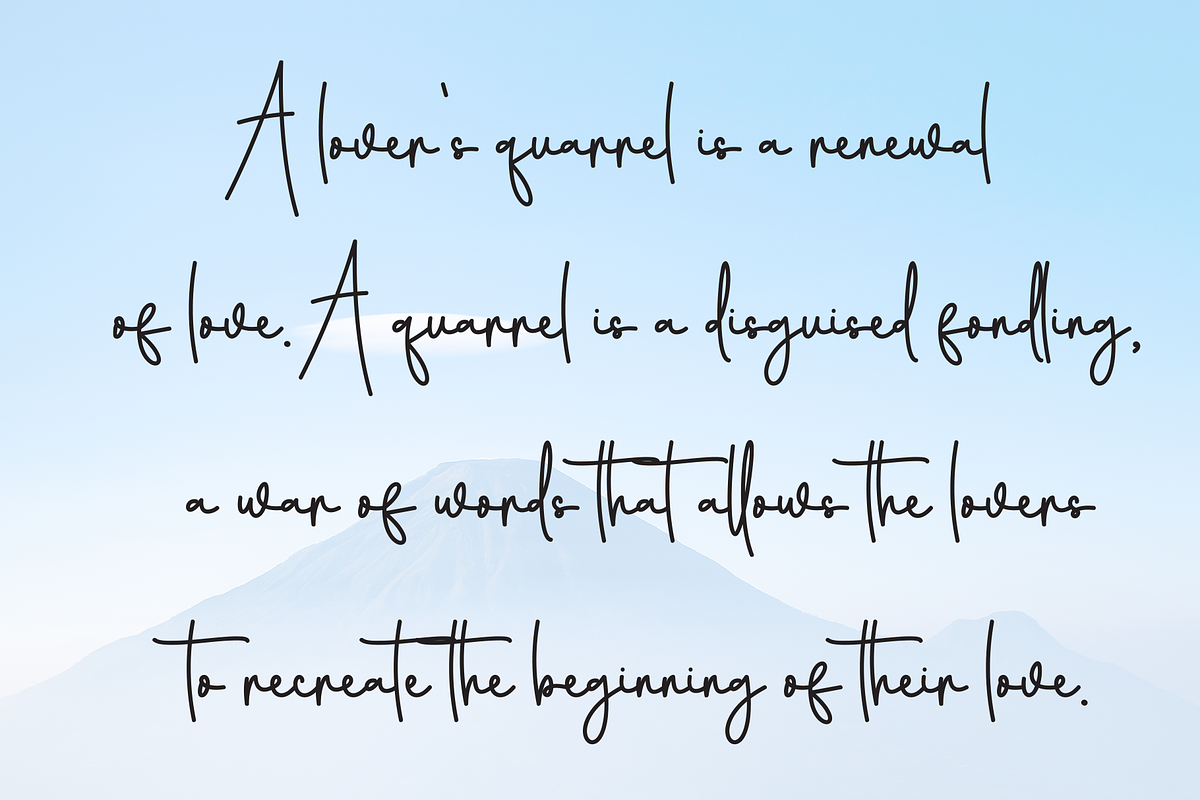 A lover's quarrel is a renewal
of love. A quarrel is a disguised fondling,
a war of words that allows the lovers
to recreate the beginning of their love.